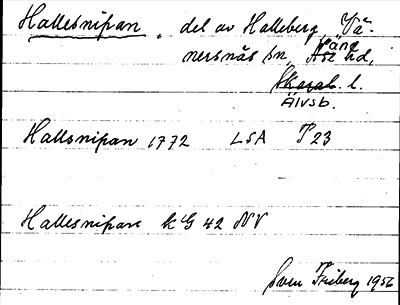 Hallesnipan, del av Halleberg, Vä-
nersnäs sn, Väne
Åse hd,
Skarab. l.
Älvsb.
Hallsnipan 1772 LSA P23
Hallesnipan KG 42 NV
Sven Friberg 1956